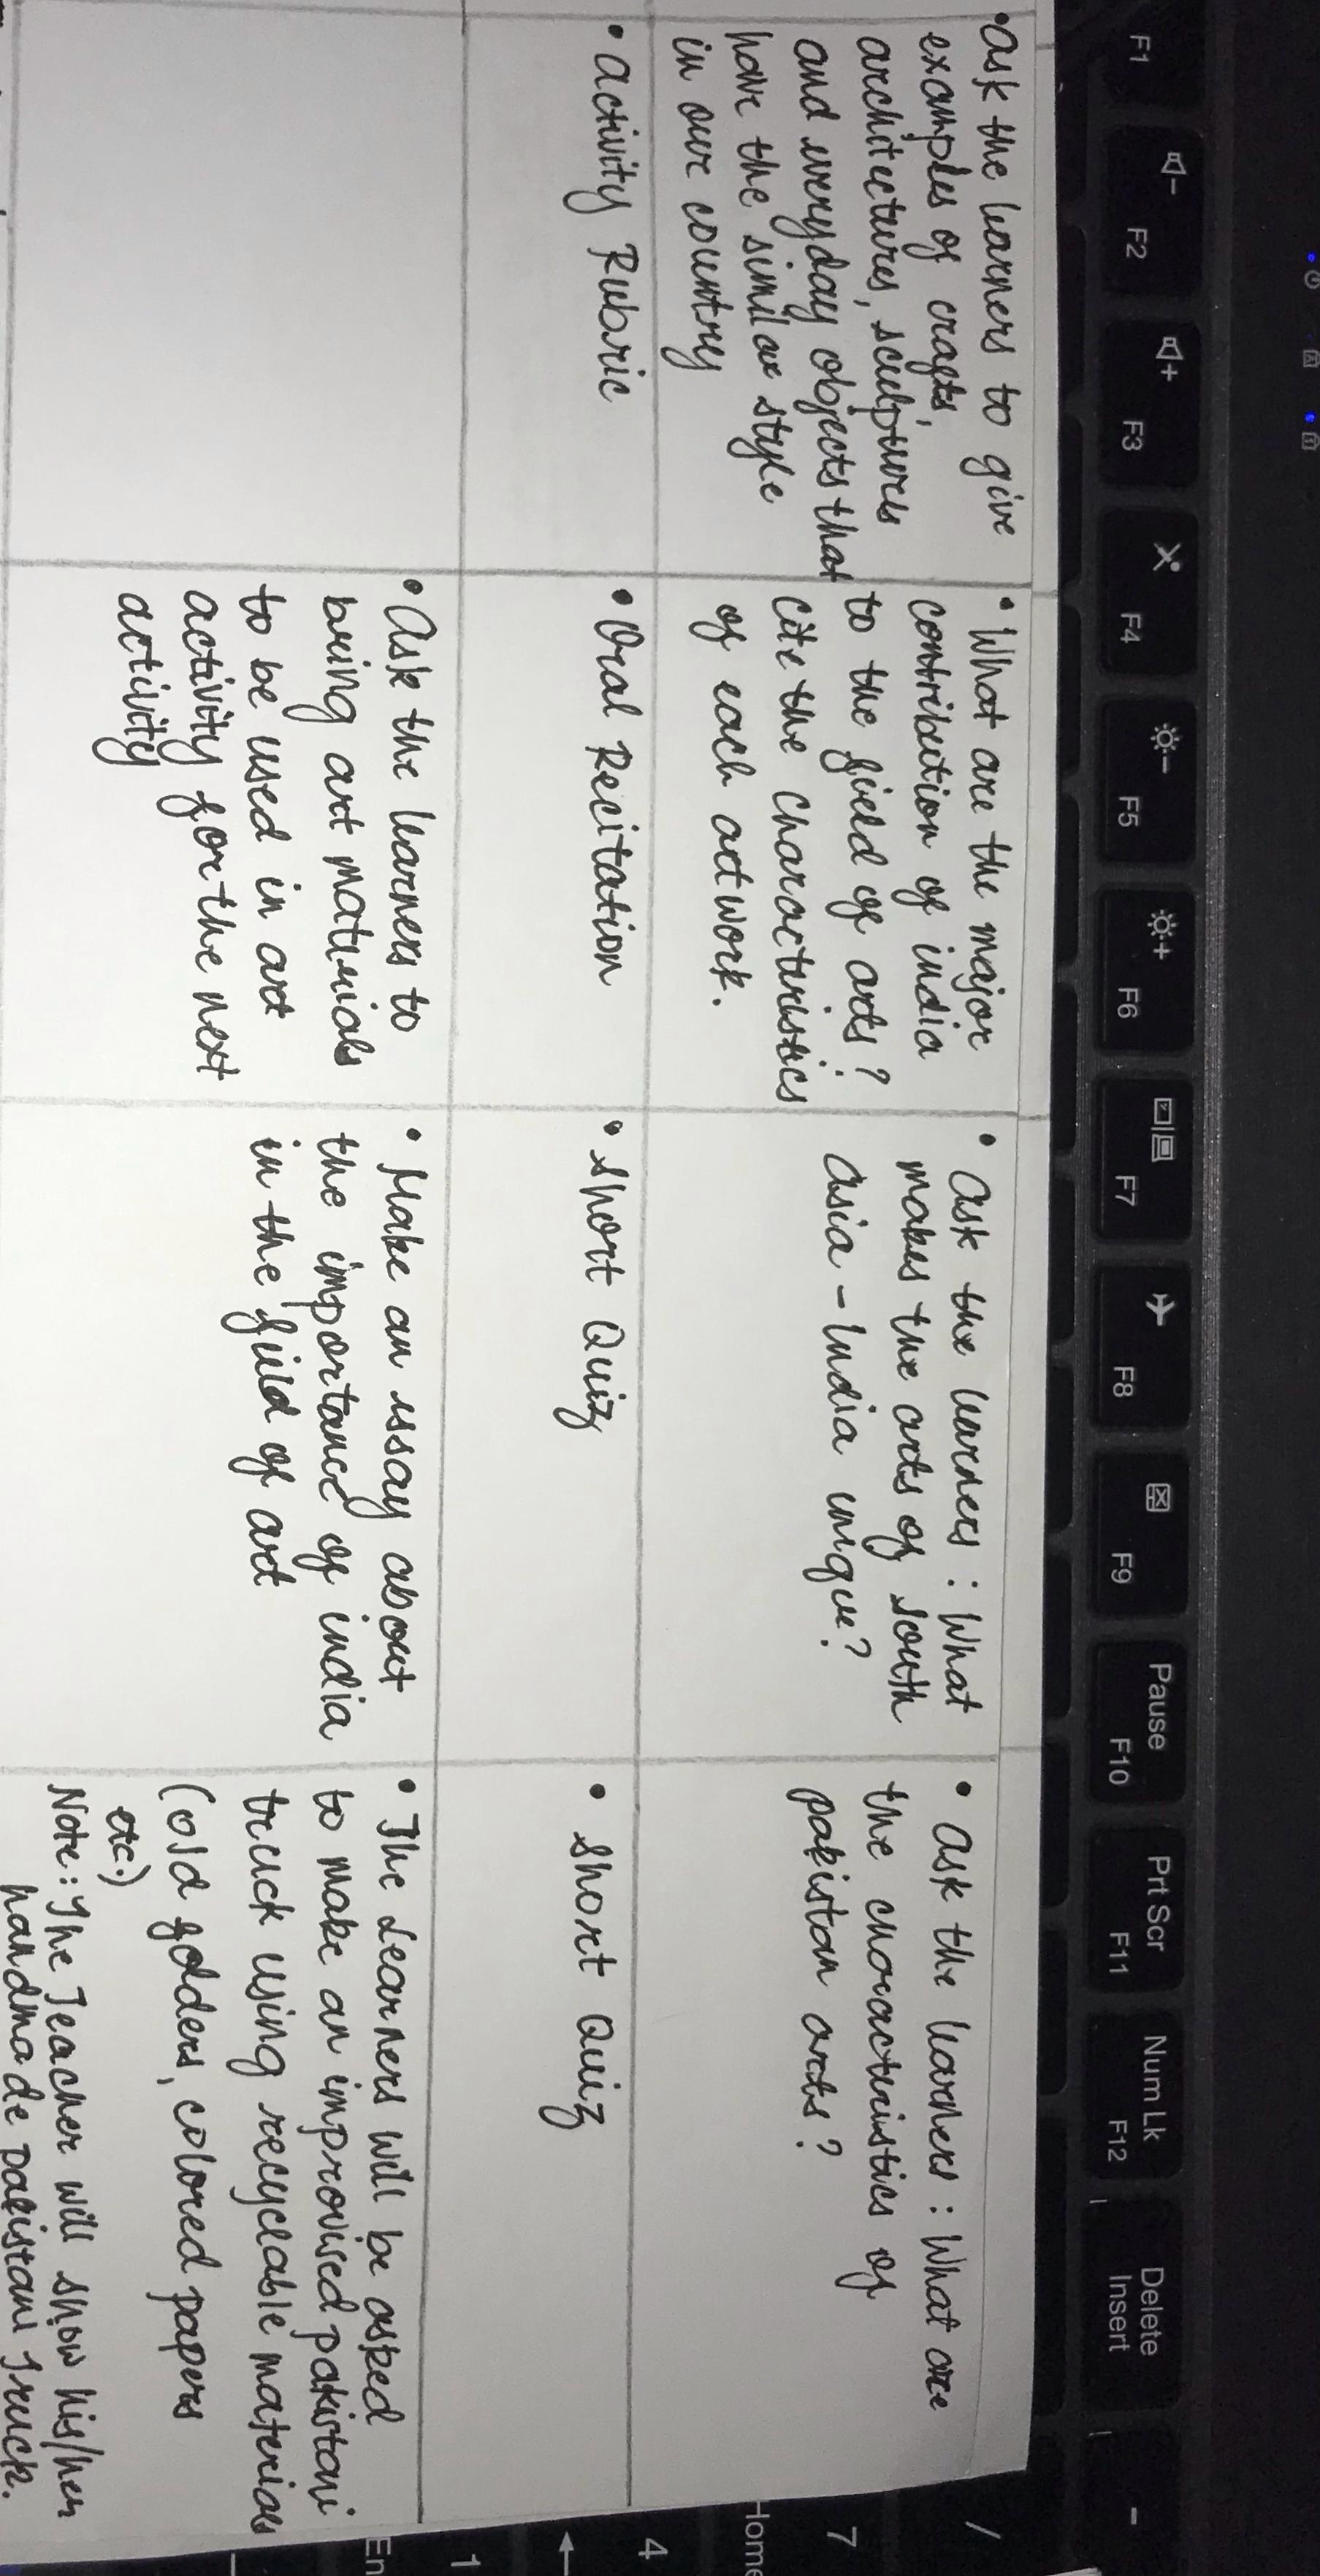 •ask the learners to give
examples of crafts,
architectures, sculptures
and everyday objects that
have the similar style
in our country
• What are the major
contribution of india
to the field of arts?
cite the characteristics
of each artwork.
• ask the learners : What
makes the arts of south
asia - India unique?
• ask the learners : What are
the characteristics of
pakistan arts?
• activity Rubric
• Oral Recitation
• short Quiz
• short Quiz
• Ask the learners to
bring art materials
to be used in art
activity for the next
activity
• Make an essay about
the importance of india
in the field of art
• The Learners will be asked
to make an improvised pakistani
truck using recyclable materials
(old folders, colored papers
etc.)
Note: The Teacher will show his/her
handmade pakistani Truck.
F1
F2
F3
F4
F5
F6
F7
F8
F9
Pause
F10
Prt Scr
F11
Num Lk
F12
Delete
Insert
-
/
7
Home
4
←
1
En